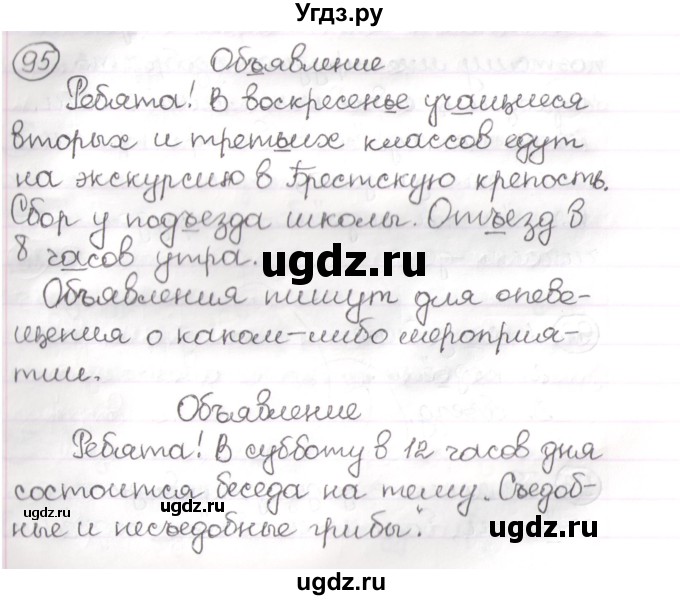 Угдз.ру
95 Объявление
Ребята! В воскресенье учащиеся
вторых и третьих классов едут
на экскурсию в Брестскую крепость.
Сбор у подъезда школы. Отъезд в
8 часов утра.
ugdz.ru
Объявления пишут для опове-
щения о каком-либо мероприя-
тии.
ugdz.ru
Объявление
Ребята! В субботу в 12 часов дня
состоится беседа на тему „Съедоб-
ugdz.ru ugdz.ru
ные и несъедобные грибы".
ugdz.ru